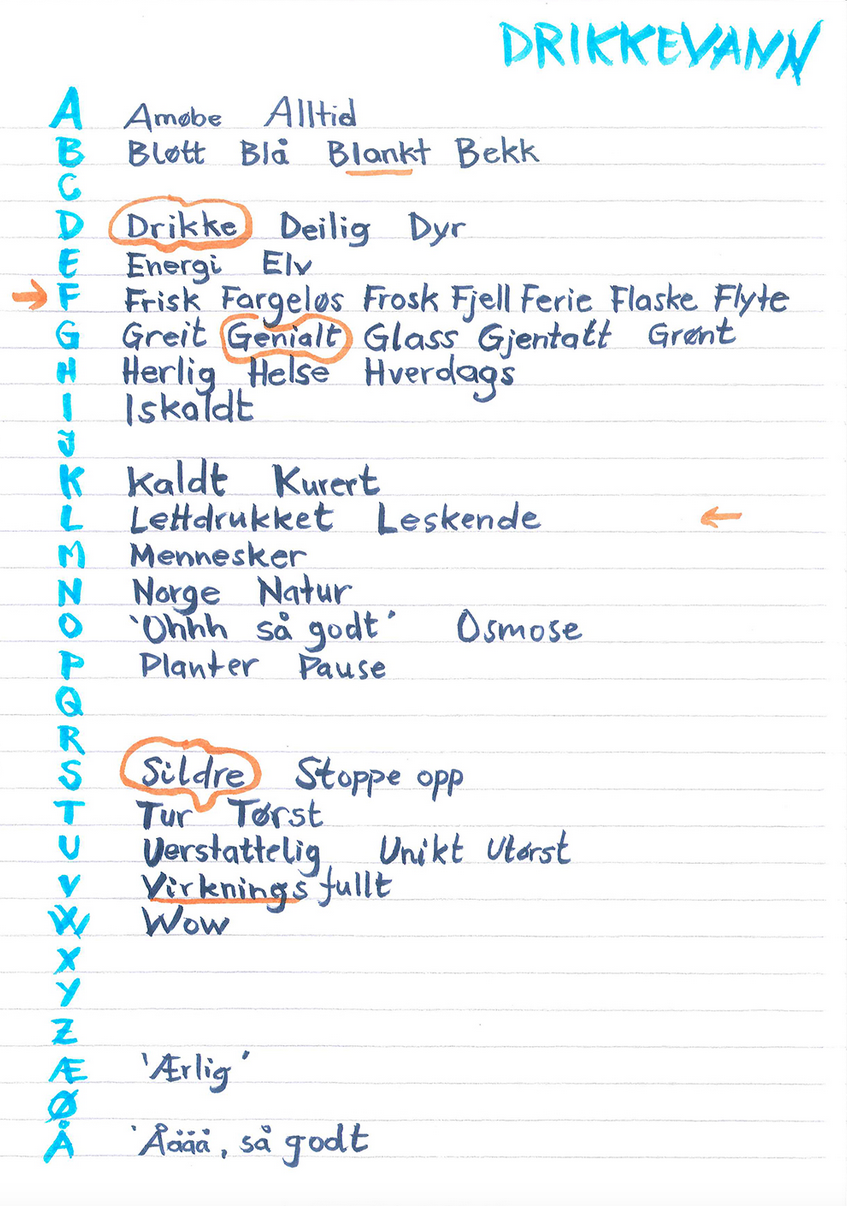 DRIKKEVANN
A Amøbe Alltid
B Bløtt Blå Blankt Bekk
C
D Drikke Deilig Dyr
E Energi Elv
→ F Frisk Fargeløs Frosk Fjell Ferie Flaske Flyte
G Greit Genialt Glass Gjentatt Grønt
H Herlig Helse Hverdags
I Iskaldt
J
K Kaldt Kurert
L Lettdrukket Leskende ←
M Mennesker
N Norge Natur
O 'Ohhh så godt' Osmose
P Planter Pause
Q
R
S Sildre Stoppe opp
T Tur Tørst
U Uerstattelig Unikt Utørst
V Virkningsfullt
W Wow
X
Y
Z
Æ 'Ærlig'
Ø
Å 'Åååå, så godt